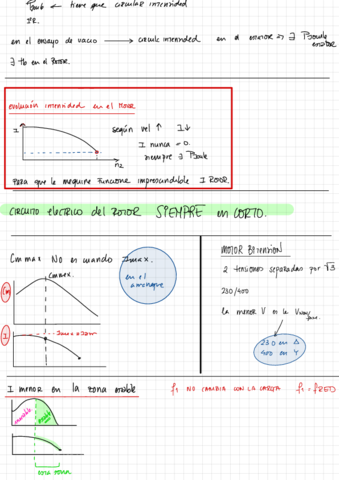 tiene que circular intensidad
IR.
en el ensayo de vacío → circule intensidad en el estator ⇒ ∃ Pcoule estator
∃ tb en el ROTOR.
evolución intensidad en el Motor
I
n2
según vel ↑ I↓
I nunca = 0.
siempre ∃ Pcoule
Para que la maquina funcione imprescindible I ROTOR.
CIRCUITO electrico del ROTOR SIEMPRE en CORTO.
Cm max No es cuando Imax.
en el arranque
Cm
Cmmax.
I
MOTOR BITENSION
2 tensiones separadas por √3
230/400
la menor V es la
230 en Δ
400 en Y
I menor en la zona estable
f1 NO CAMBIA CON LA CARGA f1 = fRED
inestable
estable
zona